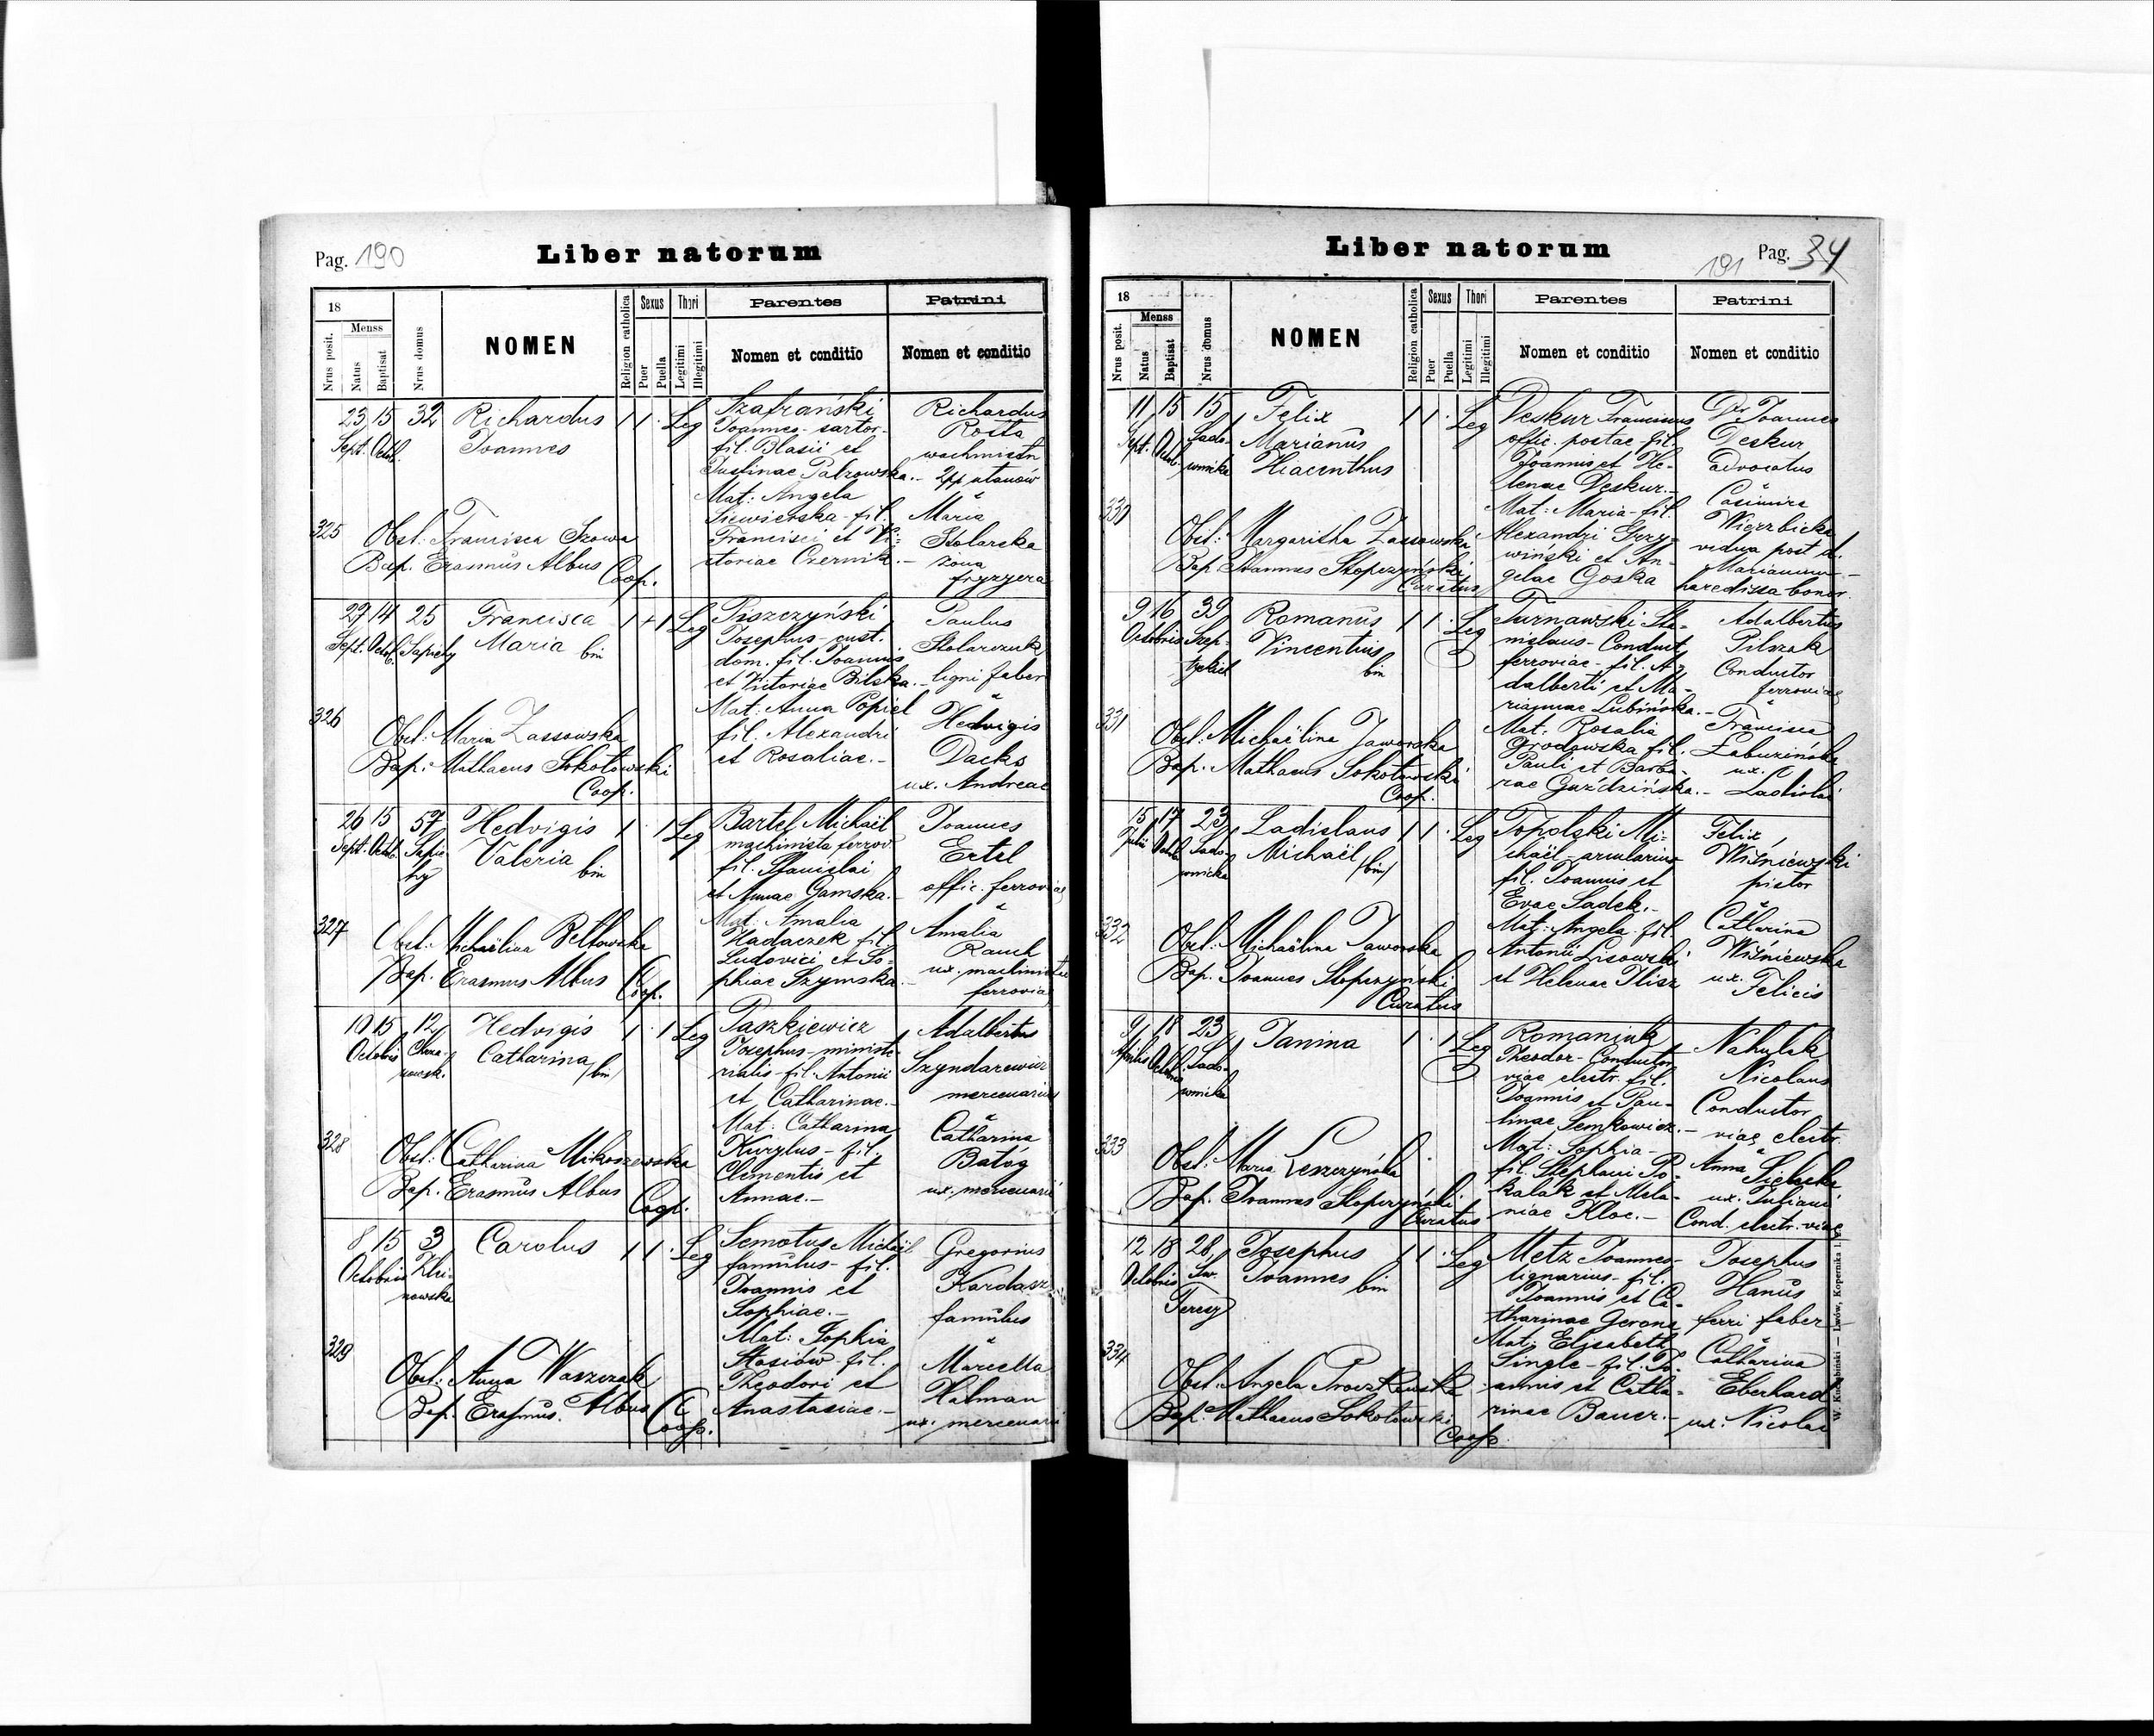 Pag. 190
Liber natorum
18
Menss
Nrus posit.
Natus
Baptisat
Nrus domus
NOMEN
Religion catholica
Sexus
Puer
Puella
Thori
Legitimi
Illegitimi
Parentes
Nomen et conditio
Patrini
Nomen et conditio
325
23 15 32
Sept. Octob.
Richardus
Joannes
1 1 · Leg
Szafrański
Joannes - sartor -
fil. Blasii et
Justinae Patrowska. -
Mat: Angela
Siewierska - fil.
Francisci et Vi-
ctoriae Czernik. -
Richardus
Rosta
wachmistr
2pp ułanów
Maria
Stolarska
żona
fryzyera
Obst: Francisca Szowa
Bap. Erasmus Albus
Coop.
326
29 14 25
Sept. Octob. Sapiehy
Francisca
Maria bin
1 · 1 Leg
Piszczyński
Josephus - cust.
dom. fil. Joannis
et Victoriae Bilska. -
Mat: Anna Popiel
fil. Alexandri
et Rosaliae. -
Paulus
Stolarczuk
ligni faber
Hedvigis
Dacks
ux. Andreae
Obst: Maria Zassowska
Bap: Mathaeus Sokołowski
Coop.
327
26 15 57
Sept. Octob. Sapie
hy
Hedvigis
Valeria bin
1 · 1 Leg
Bartel Michaël
machinista ferrov.
fil. Stanislai
et Annae Gamska. -
Mat: Amalia
Hadaczek fil.
Ludovici et So-
phiae Szymska. -
Joannes
Ertel
offic. ferroviae
Amalia
Rauch
ux. machinistae
ferroviae
Obst: Michaëlina Bełtowska
Bap. Erasmus Albus
Coop.
328
10 15 12
Octobris Chrza-
nowsk.
Hedvigis
Catharina /bin/
1 · 1 Leg
Paszkiewicz
Josephus - ministe-
rialis - fil. Antonii
et Catharinae. -
Mat: Catharina
Kurylus - fil.
Clementis et
Annae. -
Adalbertus
Szyndarewicz
mercenarius
Catharina
Batóg
ux. mercenarii
Obst: Catharina Mikoszewska
Bap. Erasmus Albus
Coop.
329
8 15 3
Octobris
nowska
Carolus
1 1 · Leg
Semotus Michaël
famulus - fil.
Joannis et
Sophiae. -
Mat: Sophia
Stasiów - fil.
Theodori et
Anastasiae. -
Gregorius
Kardasz
famulus
Marcella
Halman
ux. mercenarii
Obst: Anna Waszczak
Bap. Erasmus Albus
Coop.
Liber natorum
191
Pag. 34
18
Menss
Nrus posit.
Natus
Baptisat
Nrus domus
NOMEN
Religion catholica
Sexus
Puer
Puella
Thori
Legitimi
Illegitimi
Parentes
Nomen et conditio
Patrini
Nomen et conditio
330
11 15 15
Sept. Octob. Sado-
wnicka
Felix
Marianus
Hiacinthus
1 1 · Leg
Deskur Franciscus
offic. postae fil.
Joannis et He-
lenae Deskur. -
Mat: Maria - fil.
Alexandri Grzy-
wiński et An-
gelae Goska
Dr Joannes
Deskur
advocatus
Casimira
Wierzbicka
vidua post d.
Marianum -
haeredissa bonor.
Obst: Margaritha Zassowska
Bap. Joannes Stopczyński
Curatus
331
9 16 39
Octobris Szep-
tyckich
Romanus
Vincentius
bin
1 1 · Leg
Turnawski Sta-
nislaus - Conduct.
ferroviae - fil. A-
dalberti et Ma-
riannae Lubińska. -
Mat: Rosalia
Grodowska fil.
Pauli et Barba-
rae Guździńska. -
Adalbertus
Pilszak
Conductor
ferroviae
Francisca
Zabuzińska
ux.
Ladislai
Obst: Michaëlina Jaworska
Bap. Mathaeus Sokołowski
Coop.
332
15 17 23
Julii Octob. Sado-
wnicka
Ladislaus
Michaël /bin/
1 1 · Leg
Topolski Mi-
chaël - arcularius
fil. Joannis et
Evae Sadek. -
Mat: Angela fil.
Antonii Lisowski
et Helenae Ilisz
Felix
Wiśniewski
pistor
Catharina
Wiśniewska
ux. Felicis
Obst: Michaëlina Jaworska
Bap. Joannes Stopczyński
Curatus
333
9 18 23
Aprilis Octobris Sado-
wnicka
Janina
1 · 1 Leg
Romaniuk
Theodor - Conductor
viae electr. fil.
Joannis et Pau-
linae Semkowicz. -
Mat: Sophia -
fil. Stephani Po-
kalak et Mela-
niae Kloc. -
Nahulak
Nicolaus
Conductor
viae electr.
Anna
ux. Juliani
Cond. electr. viae
Obst: Maria Leszczyńska
Bap. Joannes Stopczyński
Curatus
334
12 18 28
Octobris Św.
Teresy
Josephus
Joannes bin
1 1 · Leg
Metz Joannes -
lignarius - fil.
Joannis et Ca-
tharinae Gerona
Mat: Elisabeth
Single - fil. Jo-
annis et Catha-
rinae Bauer. -
Josephus
Hanus
ferri faber
Catharina
Eberhard
ux. Nicolai
Obst: Angela
Bap. Mathaeus Sokołowski
Coop.